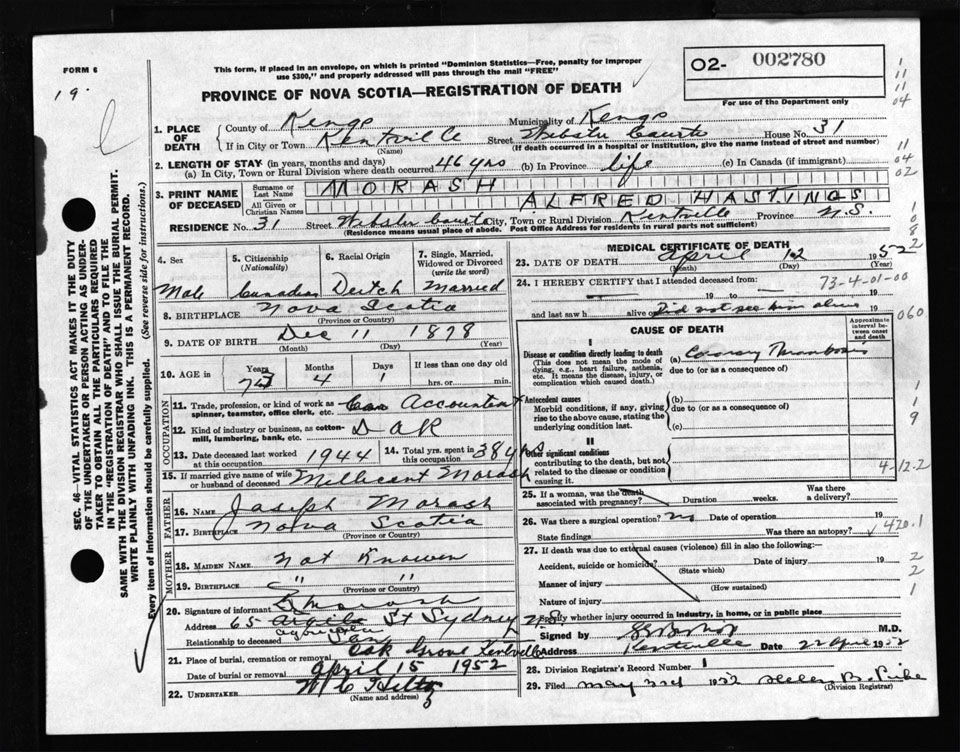 FORM 6
19
This form, if placed in an envelope, on which is printed "Dominion Statistics—Free, penalty for improper
use $300," and properly addressed will pass through the mail "FREE"
PROVINCE OF NOVA SCOTIA—REGISTRATION OF DEATH
02- 002780
For use of the Department only
1. PLACE OF DEATH County of Kings Municipality of Kings
If in City or Town Kentville (Name) Street Webster Courts House No. 31
(If death occurred in a hospital or institution, give the name instead of street and number)
2. LENGTH OF STAY (in years, months and days)
(a) In City, Town or Rural Division where death occurred 46 yrs (b) In Province life (c) In Canada (if immigrant)
3. PRINT NAME OF DECEASED Surname or Last Name MORASH
All Given or Christian Names ALFRED HASTINGS
RESIDENCE No. 31 Street Webster Courts City, Town or Rural Division Kentville Province N.S.
(Residence means usual place of abode. Post Office Address for residents in rural parts not sufficient)
4. Sex Male
5. Citizenship (Nationality) Canadian
6. Racial Origin Deutch
7. Single, Married, Widowed or Divorced (write the word) Married
8. BIRTHPLACE Nova Scotia
(Province or Country)
9. DATE OF BIRTH Dec 11 1878
(Month) (Day) (Year)
10. AGE in Years 73 Months 4 Days 1 If less than one day old
hrs. or min.
OCCUPATION
11. Trade, profession, or kind of work as spinner, teamster, office clerk, etc. Accountant
12. Kind of industry or business, as cotton-mill, lumbering, bank, etc. DAR
13. Date deceased last worked at this occupation 1944
14. Total yrs. spent in this occupation 38 yrs
15. If married give name of wife or husband of deceased Millicent Morash
FATHER
16. NAME Joseph Morash
17. BIRTHPLACE Notva Scotia
(Province or Country)
MOTHER
18. MAIDEN NAME Not Knowen
19. BIRTHPLACE " "
(Province or Country)
20. Signature of informant Morash
Address 65 St Sydney N.S
Relationship to deceased Son
21. Place of burial, cremation or removal Oak Grove Kentville
Date of burial or removal April 15 1952
22. UNDERTAKER W C Hiltz
(Name and address)
MEDICAL CERTIFICATE OF DEATH
23. DATE OF DEATH April 12 1952
(Month) (Day) (Year)
24. I HEREBY CERTIFY that I attended deceased from: 73-4-01-00
19 to 19
and last saw h alive on Did not see him alive
060
CAUSE OF DEATH
Approximate interval between onset and death
I
Disease or condition directly leading to death (a) Coronary Thrombosis
(This does not mean the mode of dying, e.g., heart failure, asthenia, etc. It means the disease, injury, or complication which caused death.)
due to (or as a consequence of)
Antecedent causes
Morbid conditions, if any, giving rise to the above cause, stating the underlying condition last.
(b)
due to (or as a consequence of)
(c)
II
Other significant conditions
contributing to the death, but not related to the disease or condition causing it.
4-12-2
25. If a woman, was the death associated with pregnancy? Duration weeks. Was there a delivery?
26. Was there a surgical operation? no Date of operation 19
State findings Was there an autopsy? 420.1
27. If death was due to external causes (violence) fill in also the following:—
Accident, suicide or homicide? Date of injury 19
(State which)
Manner of injury
(How sustained)
Nature of injury
Specify whether injury occurred in industry, in home, or in public place
Signed by M.D.
Address Kentville Date 22 April 1952
28. Division Registrar's Record Number 1
29. Filed May 3rd 1952 Helen B.
(Division Registrar)
SEC. 46—VITAL STATISTICS ACT MAKES IT THE DUTY
OF THE UNDERTAKER OR PERSON ACTING AS UNDER-
TAKER TO OBTAIN ALL THE PARTICULARS REQUIRED
IN THE "REGISTRATION OF DEATH" AND TO FILE THE
SAME WITH THE DIVISION REGISTRAR WHO SHALL ISSUE THE BURIAL PERMIT.
WRITE PLAINLY WITH UNFADING INK. THIS IS A PERMANENT RECORD.
Every item of information should be carefully supplied. (See reverse side for instructions.)
1
11
11
04
11
04
02
1
0
8
2
1
1
9
2
2
1